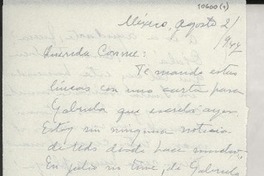 10600(1)
México, agosto 2/
1944
Querida Connie:
Te mando estas
líneas con una carta para
Gabriela que escribo ayer.
Estoy sin ninguna noticia
de Uds desde hace mucho.
En julio no tuve, de Gabriela